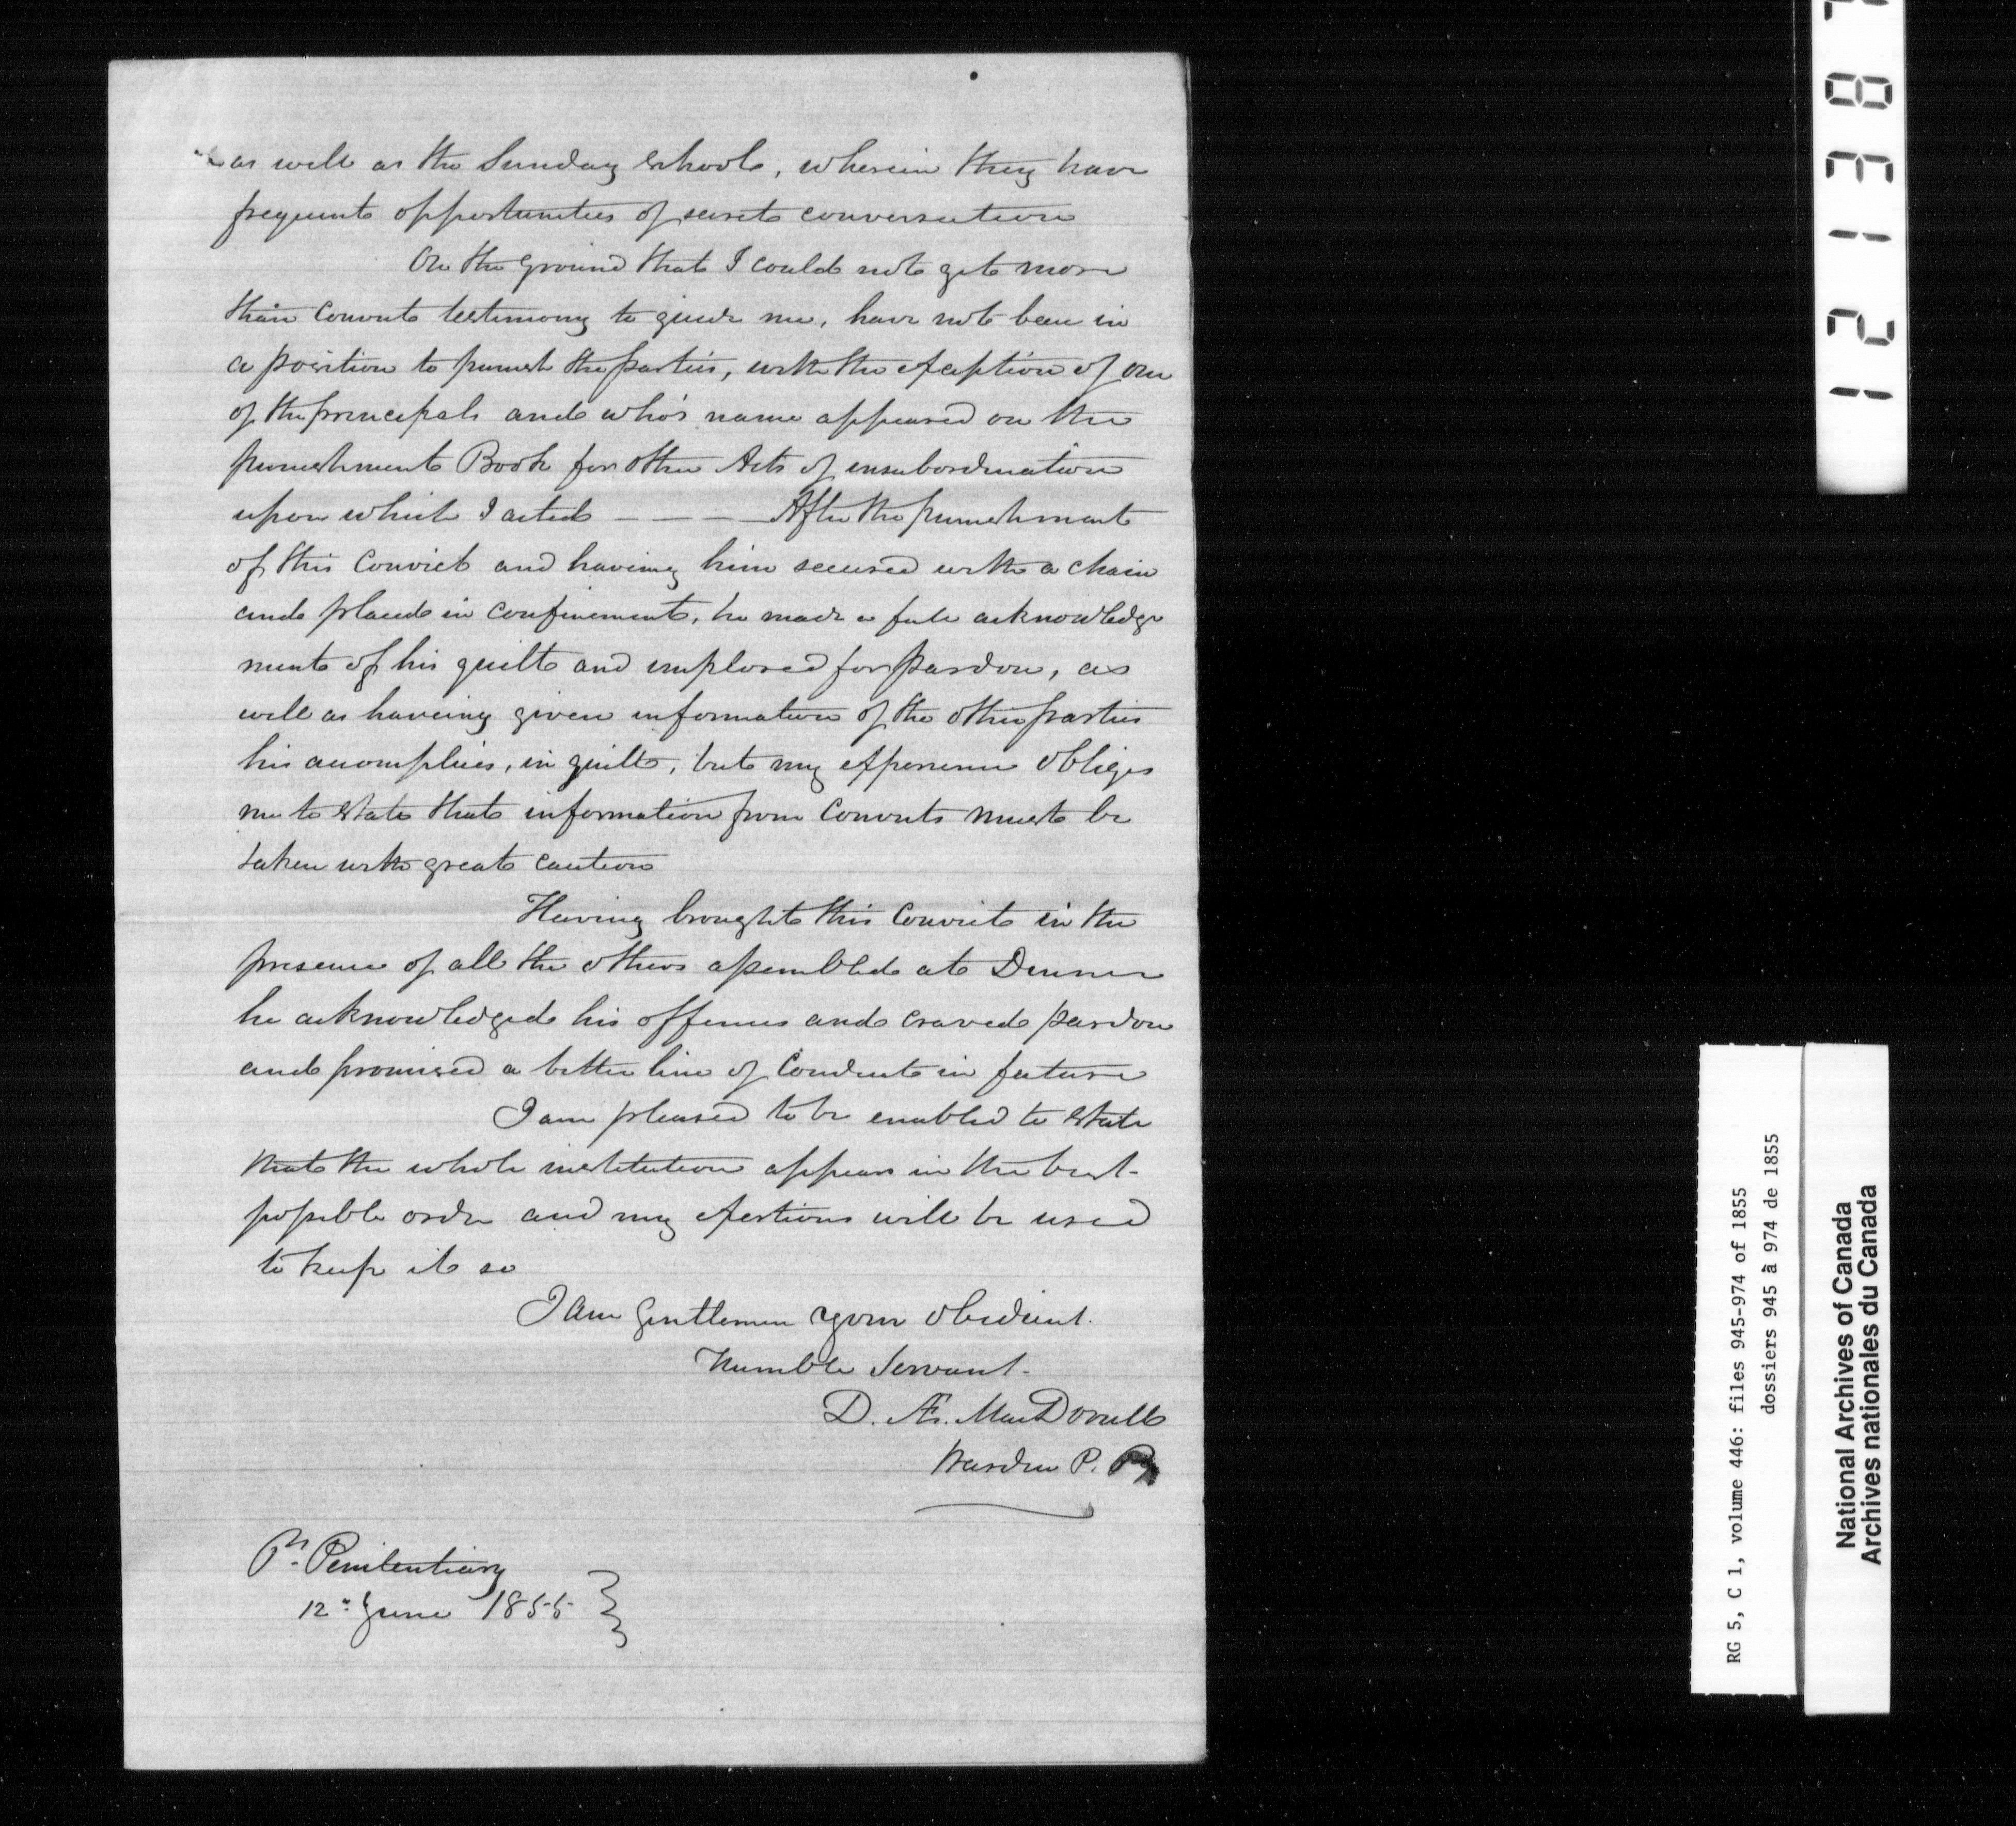 as well as the Sunday Schools, wherein they have
frequent opportunities of secret conversation
On the ground that I could not get more
than Convict testimony to guide me, have not been in
a position to punish the parties, with the exception of one
of the principals and who's name appeared on the
punishment Book for other Acts of insubordination
upon which I acted - - - - After the punishment
of this Convict and having him secured with a chain
and placed in confinement, he made a full acknowledge
ment of his guilt and implored for pardon, as
well as having given information of the other parties
his accomplices, in guilt, but my experience obliges
me to state that information from Convicts must be
taken with great caution
Having brought this Convict in the
presence of all the others assembled at Dinner
he acknowledged his offences and craved pardon
and promised a better line of Conduct in future
I am pleased to be enabled to state
that the whole institution appears in the best
possible order and my exertions will be used
to keep it so
I am Gentlemen your obedient
Humble Servant
D. Æ. MacDonell
Warden P. Py
Pl. Penitentiary
12th June 1855
12138
RG 5, C 1, volume 446: files 945-974 of 1855
dossiers 945 à 974 de 1855
National Archives of Canada
Archives nationales du Canada